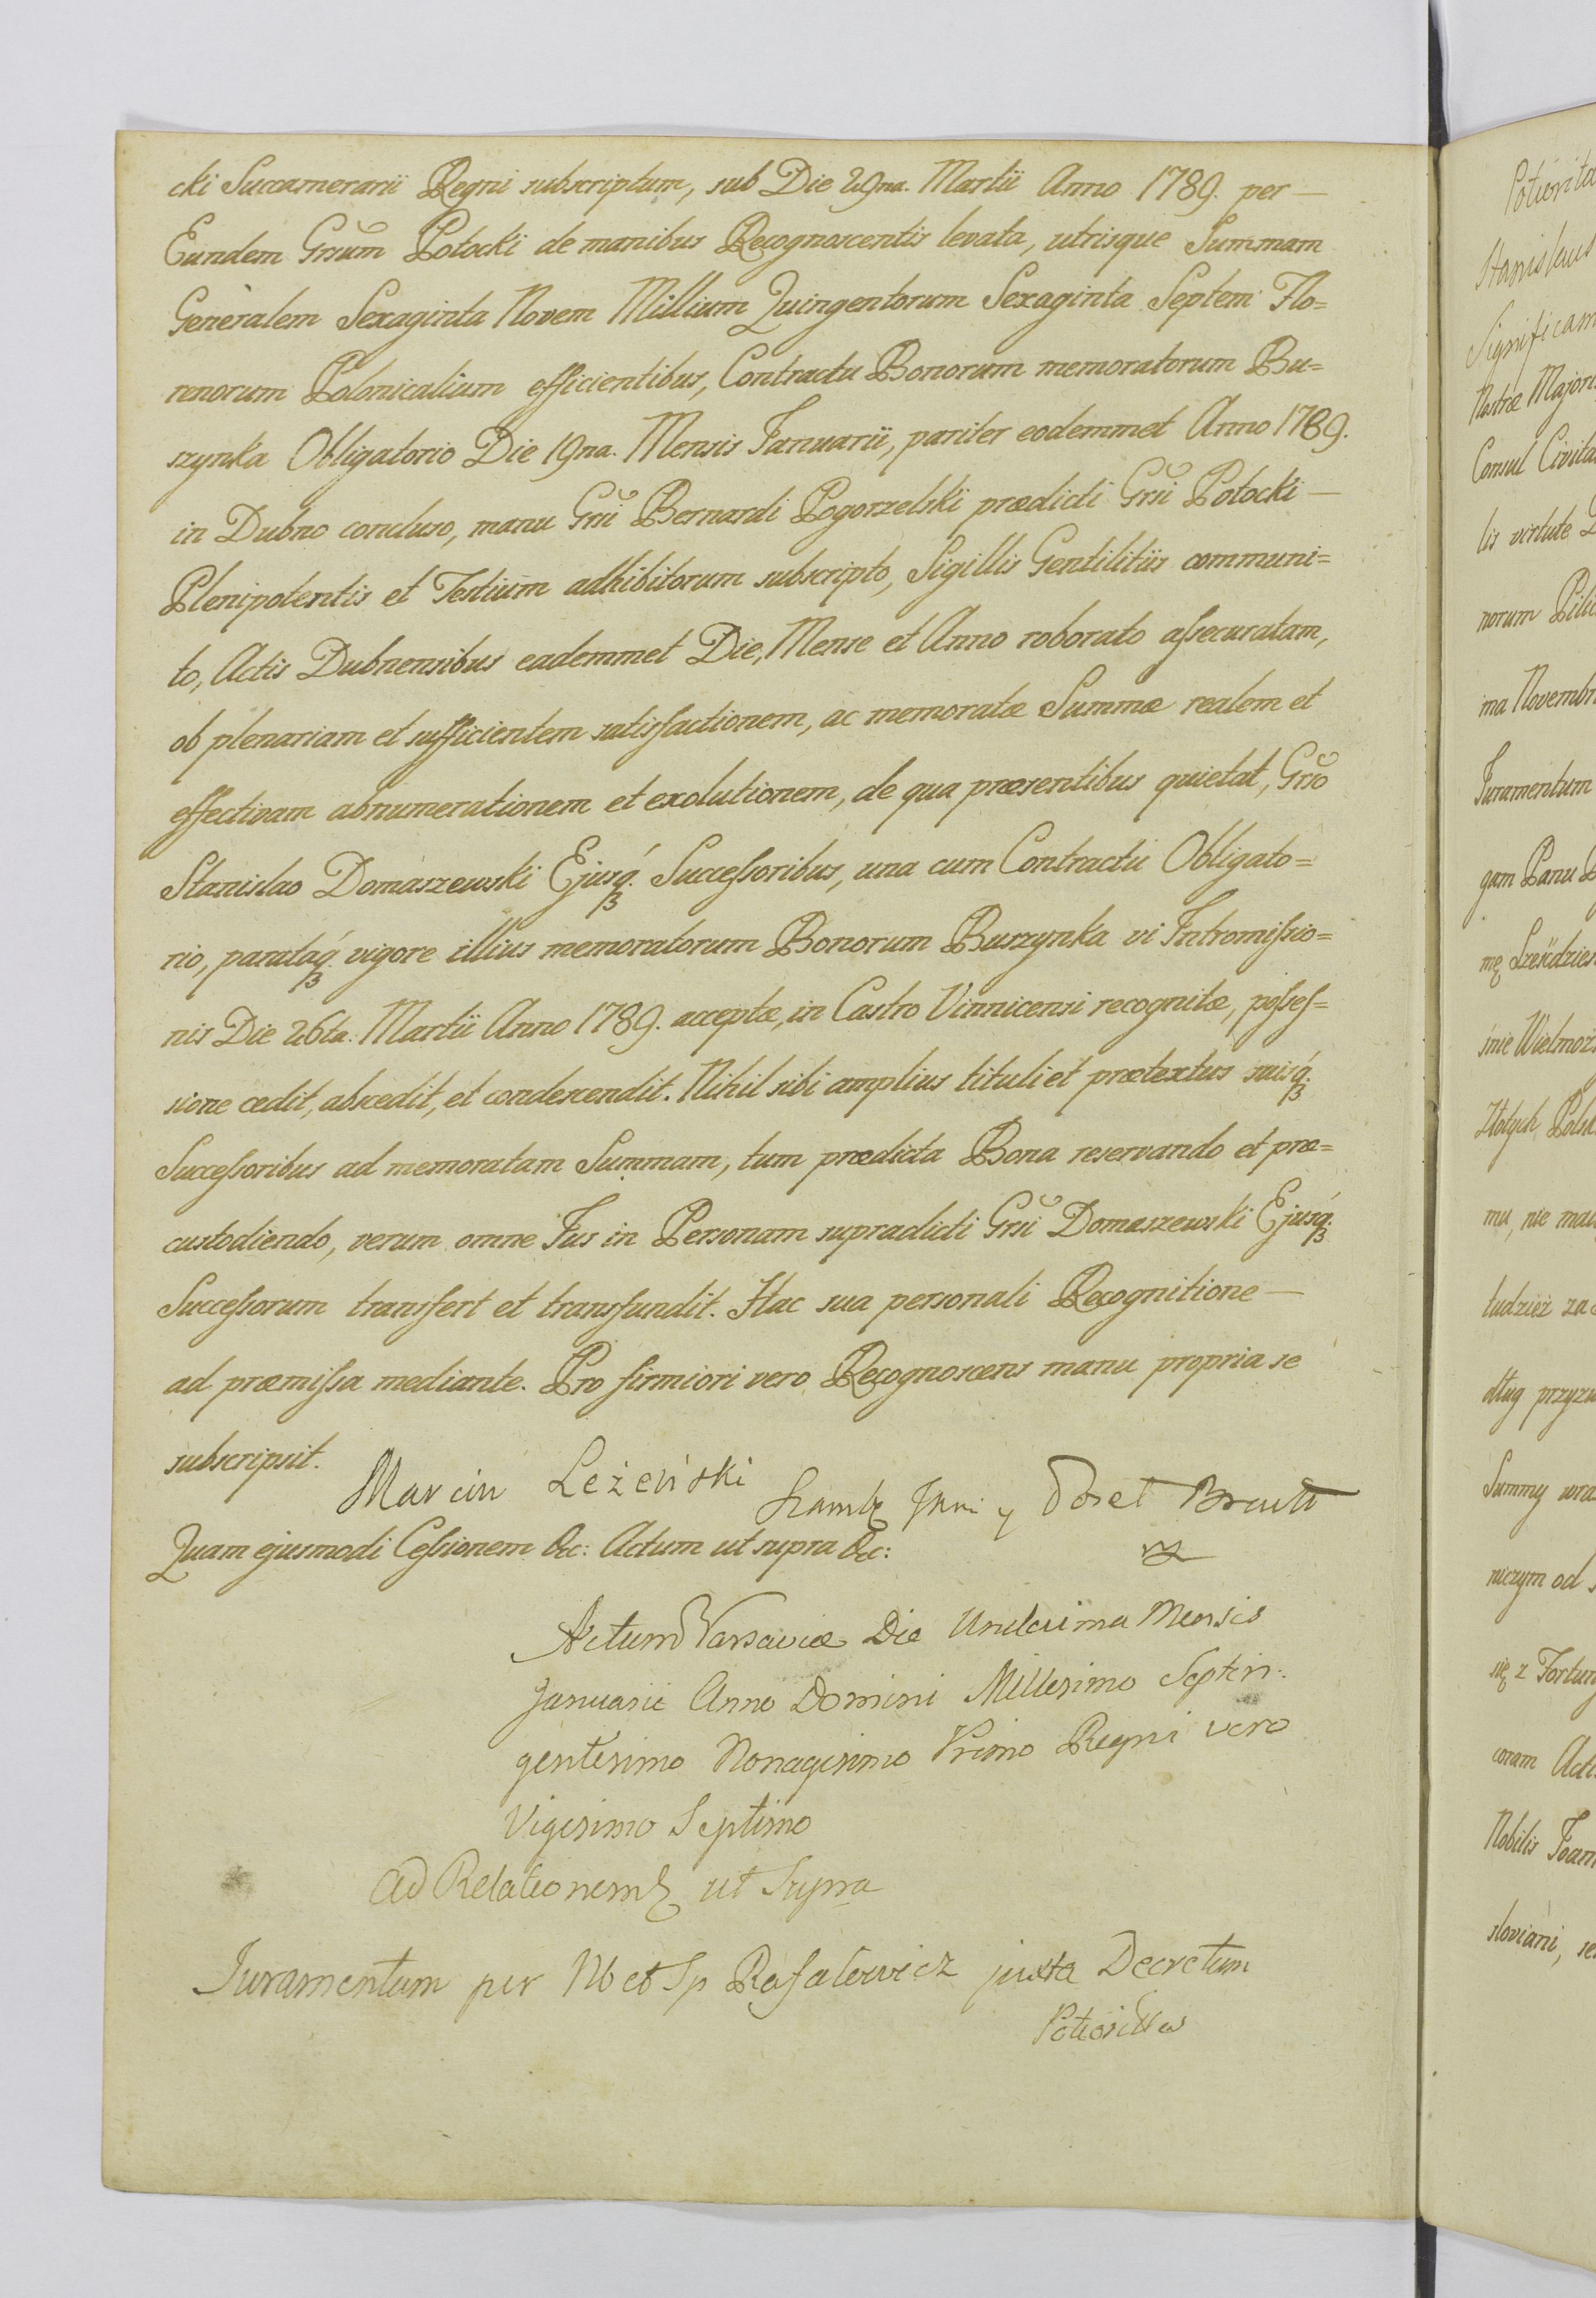 cki Succamerarii Regni subscriptum, sub Die 29na. Martii Anno 1789. per —
Eundem Grsum Potocki de manibus Recognoscentis levata, utrisque Summam
Generalem Sexaginta Novem Millium Quingentorum Sexaginta Septem Flo=
renorum Polonicalium efficientibus, Contractu Bonorum memoratorum Bu=
szynka Obligatorio Die 19na. Mensis Januarii, pariter eodemmet Anno 1789.
in Dubno concluso, manu Grsi Bernardi Pogorzelski prædicti Grsi Potocki —
Plenipotentis et Testium adhibitorum subscripto, Sigillis Gentilitiis communi=
to, Actis Dubnensibus eademmet Die, Mense et Anno roborato assecuratam,
ob plenariam et sufficientem satisfactionem, ac memoratæ Summæ realem et
effectivam abnumerationem et exolutionem, de qua præsentibus quietat, Grso
Stanislao Domaszewski Ejusq́ꝫ Successoribus, una cum Contractu Obligato=
rio, parataq́ꝫ vigore illius memoratorum Bonorum Buszynka vi Intromissio=
nis Die 26ta. Martii Anno 1789. acceptæ, in Castro Vinnicensi recognitæ, posses=
sione cedit, abscedit, et condescendit. Nihil sibi amplius tituli et prætextus suisq́ꝫ
Successoribus ad memoratam Summam, tum prædicta Bona reservando et præ=
custodiendo, verum omne Jus in Personam supradicti Grsi Domaszewski Ejusq́ꝫ
Successorum transfert et transfundit. Hac sua personali Recognitione —
ad præmissa mediante. Pro firmiori vero Recognoscens manu propria se
subscripsit.
Marcin Leżeński Szamb JKMci y Poseł Bracła
Quam ejusmodi Cessionem &c: Actum ut supra &c:
Actum Varsaviæ Die Undecima Mensis
Januarii Anno Domini Millesimo Septin:
gentesimo Nonagesimo Primo Regni vero
Vigesimo Septimo
Ad Relationem ut Supra
Juramentum per Nb et Sp Rafalowicz juxta Decretum
Potioritatis
Stanislaus
Significam
Nostræ Majori
Consul Civita
lis virtute
norum
ma Novembr
Juramentum
gam Panu
mę
śnie Wielmoż
Złotych Polsk
mu, nie
tudzież za
dług
Summy
niczym od
się z Fortun
coram Acti
Nobilis Joan